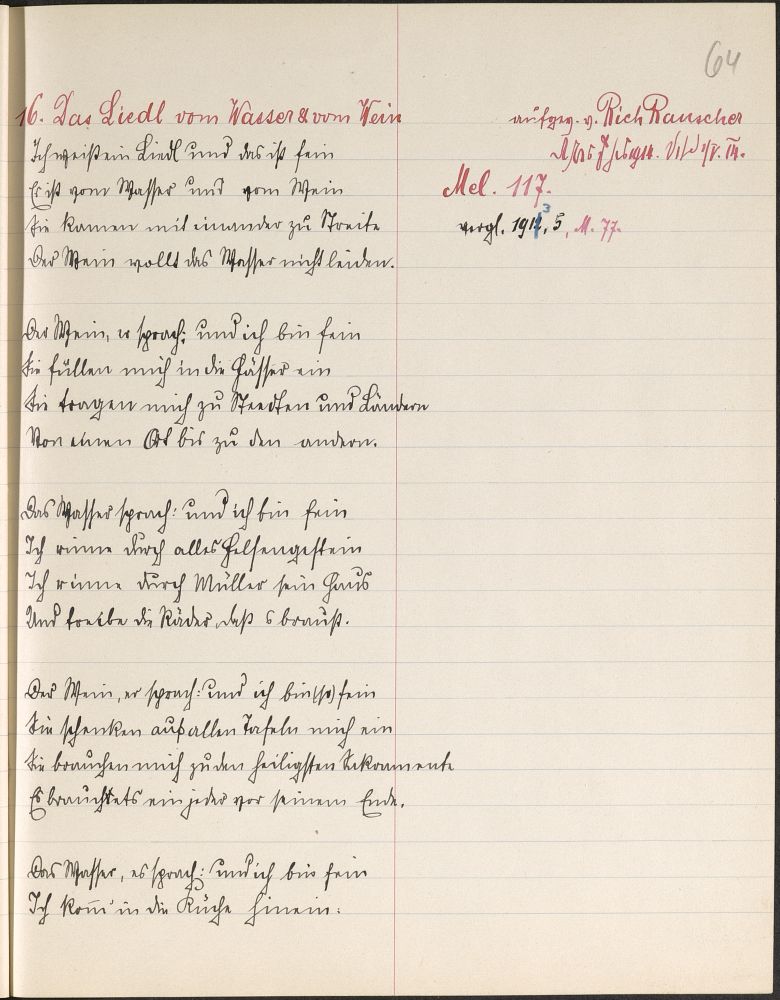 64
16. Das Liedl vom Wasser & vom Wein
aufgez. v. Rich Rauscher
Mel. 117.
vergl. 1913, 5, M. 77.
Ich weiß ein Liedl und das ist fein
Es ist vom Wasser und vom Wein
Sie kamen mit einander zu Streite
Der Wein wollt das Wasser nicht leiden.
Der Wein, er sprach: und ich bin fein
Sie füllen mich in die Fässer ein
Sie tragen mich zu Steedten und Ländern
Von einen Ort bis zu den andern.
Das Wasser sprach: und ich bin fein
Ich rinne durch alles Felsengestein
Ich rinne durch Müller sein Haus
Und treibe die Räder, daß s braust.
Der Wein, er sprach: und ich bin (so) fein
Sie schenken auf allen Tafeln mich ein
Sie brauchen mich zu den heiligsten Sakramente
Es braucht ein jeder vor seinem Ende.
Das Wasser, es sprach: und ich bin fein
Ich kom̅' in die Küche hinein: